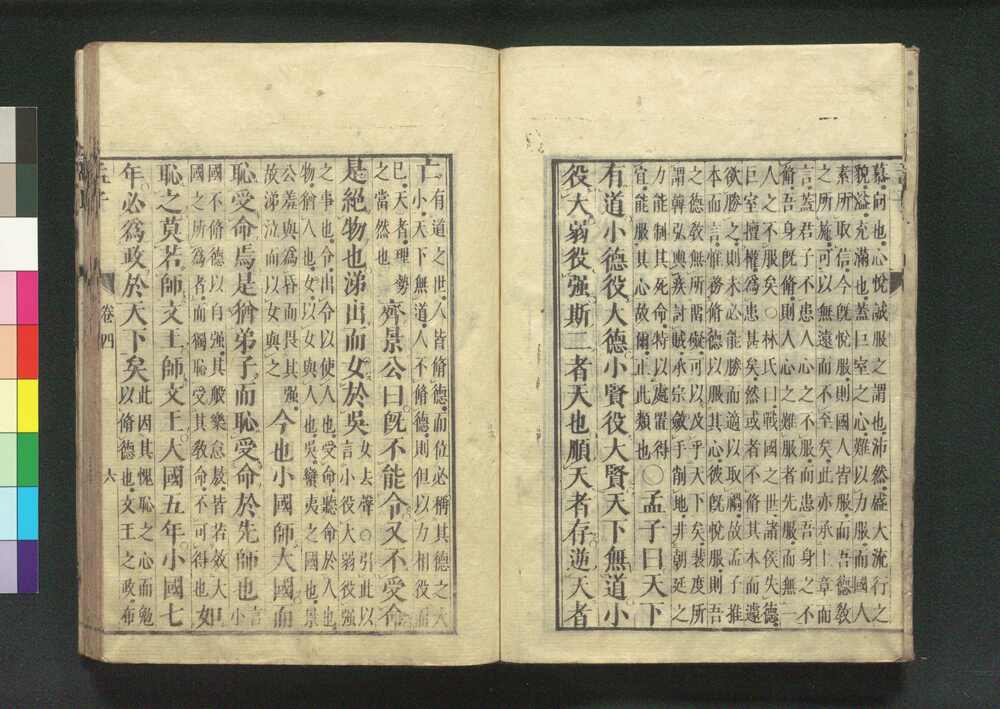 慕向也心悅誠服之謂也沛然盛大流行之
貌溢充滿也蓋巨室之心難以力服而國人
素所取信今旣悅服則國人皆服而吾德敎
之所施可以無遠而不至矣此亦承上章而
言蓋君子不患人心之不服而患吾身之不
脩吾身旣脩則人心之難服者先服而無一
人之不服矣○林氏曰戰國之世諸侯失德
巨室擅權爲患甚矣然或者不脩其本而遽
欲勝之則未必能勝而適以取禍故孟子推
本而言惟務脩德以服其心彼旣悅服則吾
之德敎無所留礙可以及乎天下矣裴度所
謂韓弘輿疾討賊承宗斂手削地非朝廷之
力能制其死命特以處置得
宜能服其心故爾正此類也○孟子曰天下
有道小德役大德小賢役大賢天下無道小
役大弱役强斯二者天也順天者存逆天者
亡有道之世人皆脩德而位必稱其德之大
小天下無道人不脩德則但以力相役而
已天者理勢
之當然也齊景公曰旣不能令又不受命
是絕物也涕出而女於吳女去聲○引此以
言小役大弱役强
之事也令出令以使人也受命聽命於人也
物猶人也女以女與人也吳蠻夷之國也景
公羞與爲昏而畏其强
故涕泣而以女與之今也小國師大國而
恥受命焉是猶弟子而恥受命於先師也言
小
國不脩德以自强其般樂怠敖皆若效大
國之所爲者而獨恥受其敎命不可得也如
恥之莫若師文王師文王大國五年小國七
年必爲政於天下矣此因其愧恥之心而勉
以脩德也文王之政布
卷四
六